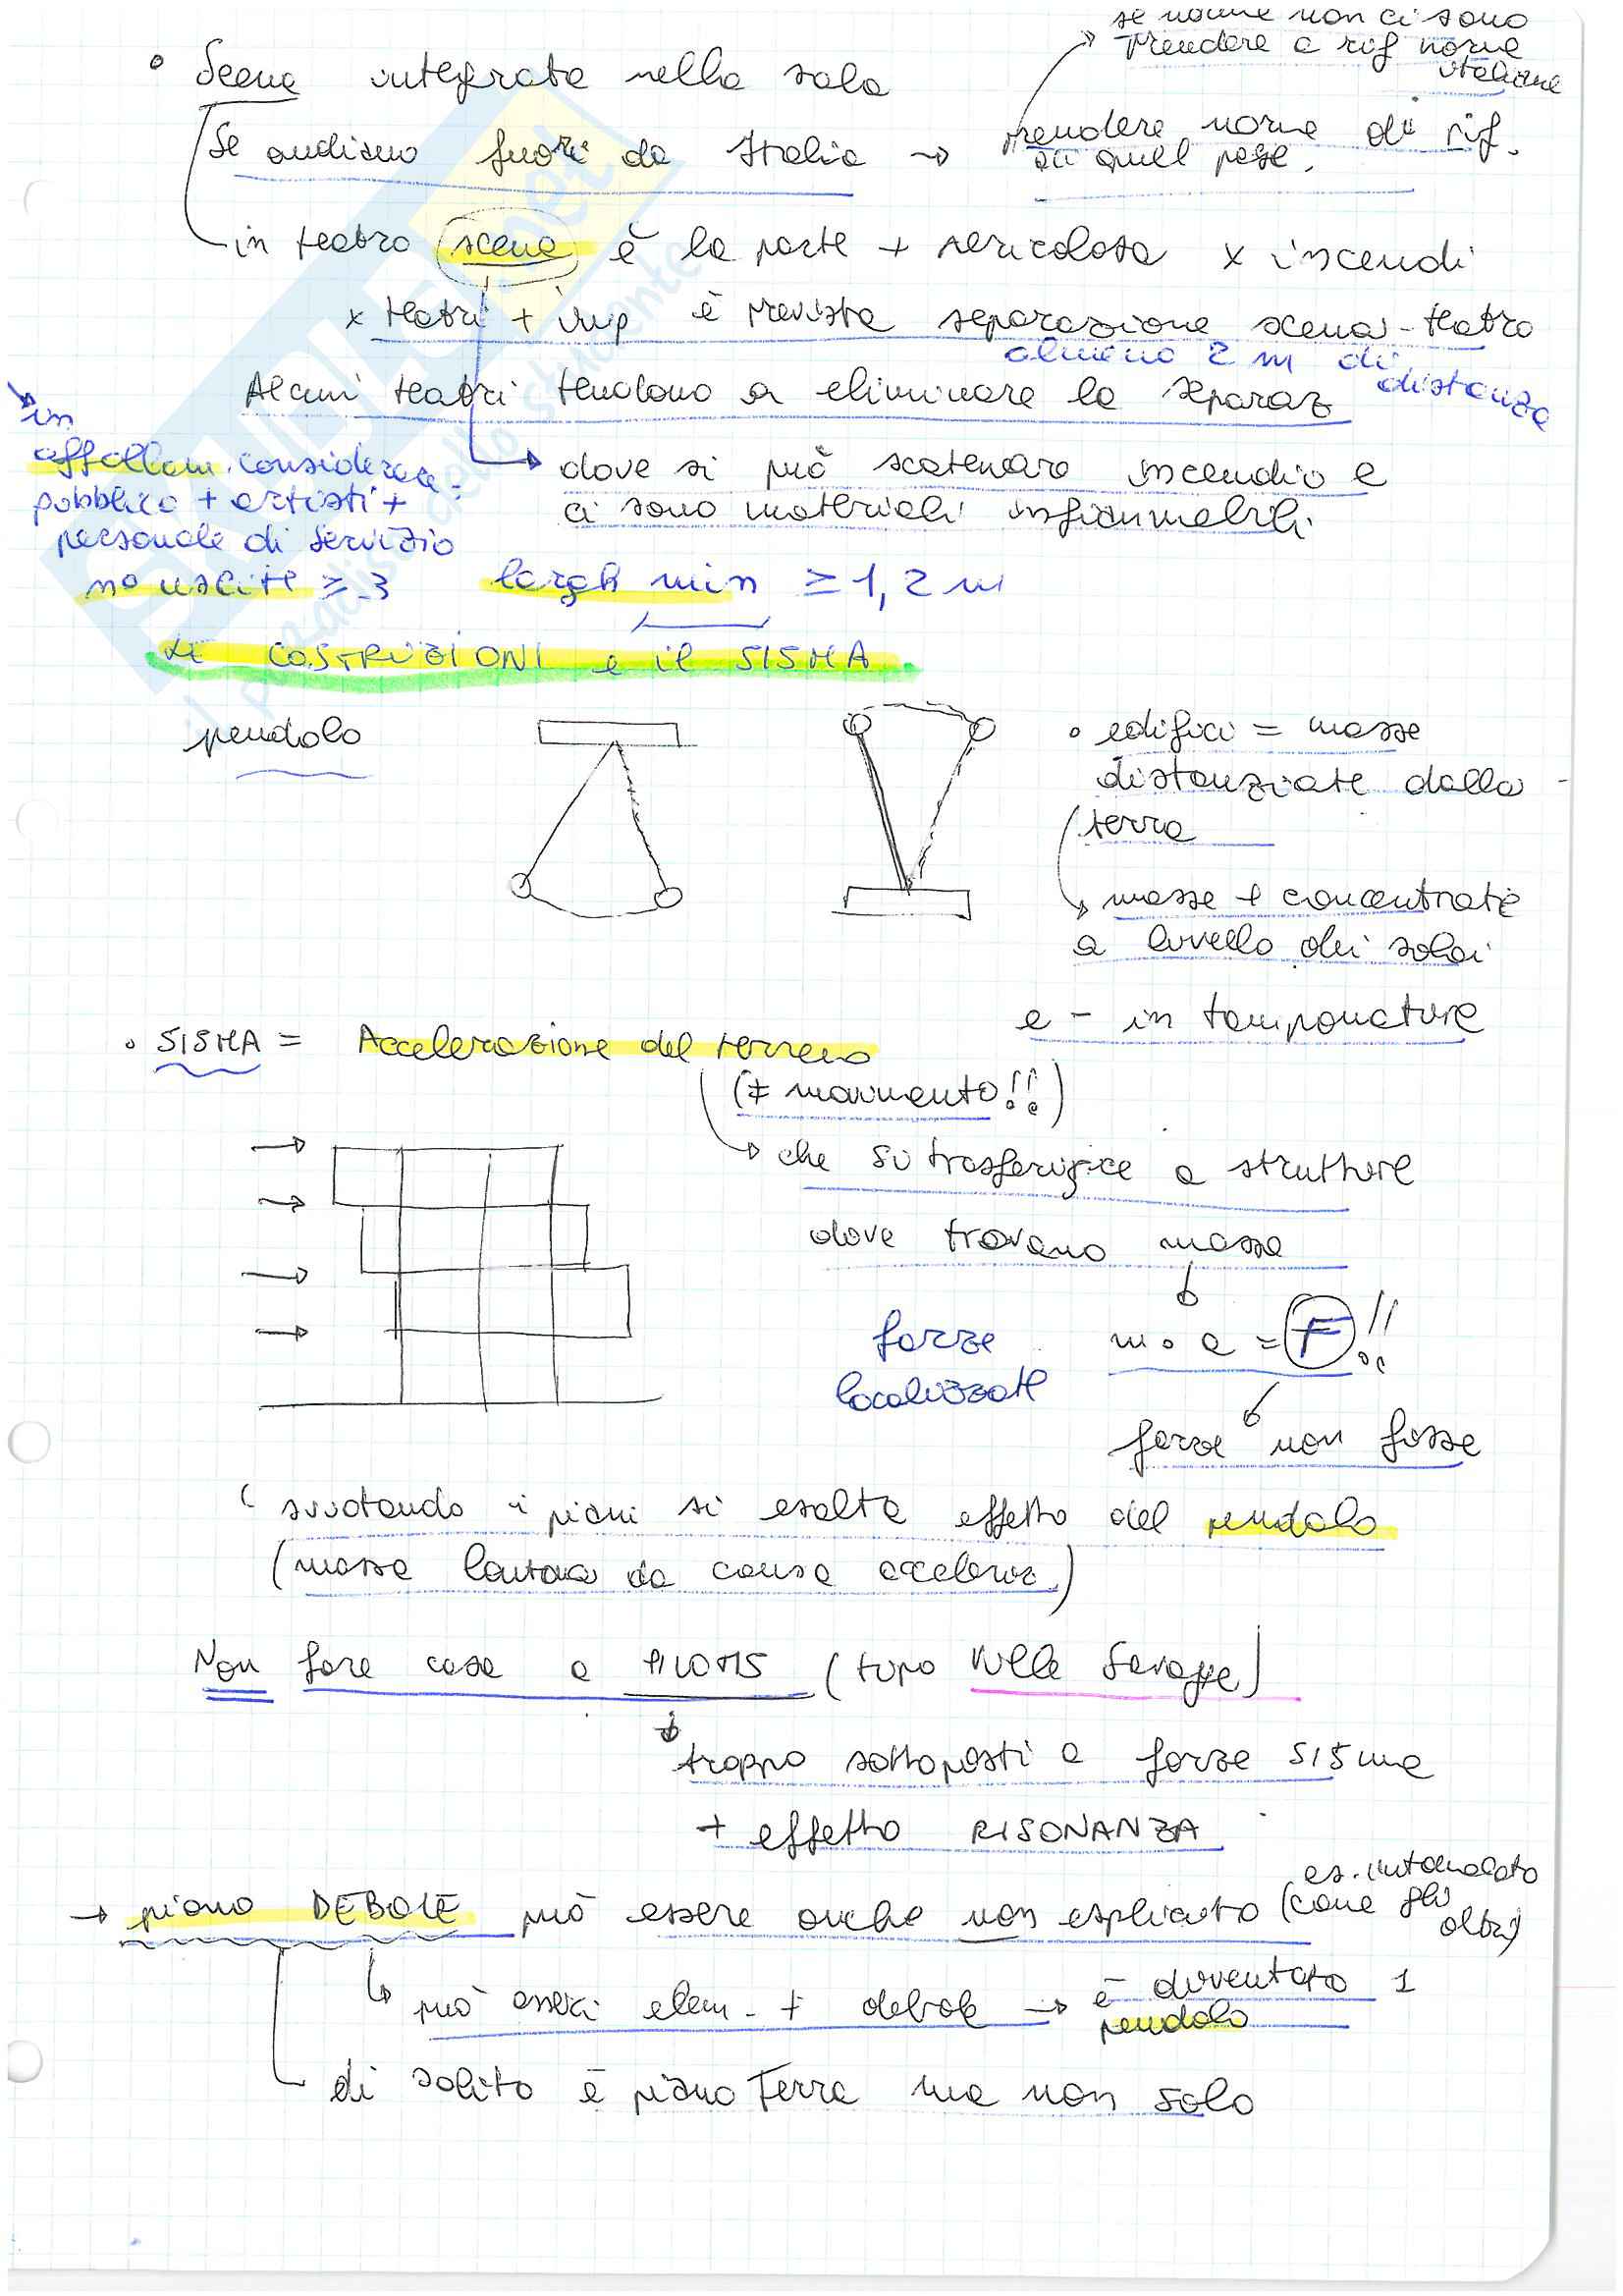 se norme non ci sono
prendere a rif norme
italiane
• Scena integrata nella sala
Se andiamo fuori da Italia → prendere norme di rif.
di quel paese.
in teatro scena è la parte + pericolosa x incendi
x teatri + imp è prevista separazione scena-teatro
almeno 2 m di
distanza
Alcuni teatri tendono a eliminare la separaz
in
affollam. considerare
pubblico + artisti +
personale di servizio
dove si può scatenare incendio e
ci sono materiali infiammabili
n° uscite ≥ 3 largh min ≥ 1,2 m
LE COSTRUZIONI e il SISMA
pendolo
• edifici = masse
distanziate dalla
terra
masse + concentrate
a livello dei solai
e - in tamponature
• SISMA = Accelerazione del terreno
(≠ movimento!!)
→ che si trasferisce a strutture
dove trovano massa
forze
localizzate
m · a = F !!
forze non fisse
svuotando i piani si esalta effetto del pendolo
(massa lontana da causa acceleraz.)
Non fare case a PILOTIS (tipo Ville Savoye)
troppo sottoposti a forze sisma
+ effetto RISONANZA
→ piano DEBOLE può essere anche non esplicito (come gli
altri)
es. intonacato
può esserci elem. + debole → è diventato 1
pendolo
di solito è piano Terra ma non solo